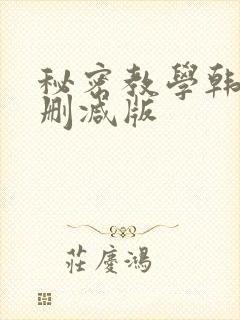 秘密教學韩
刪減版
莊慶鴻